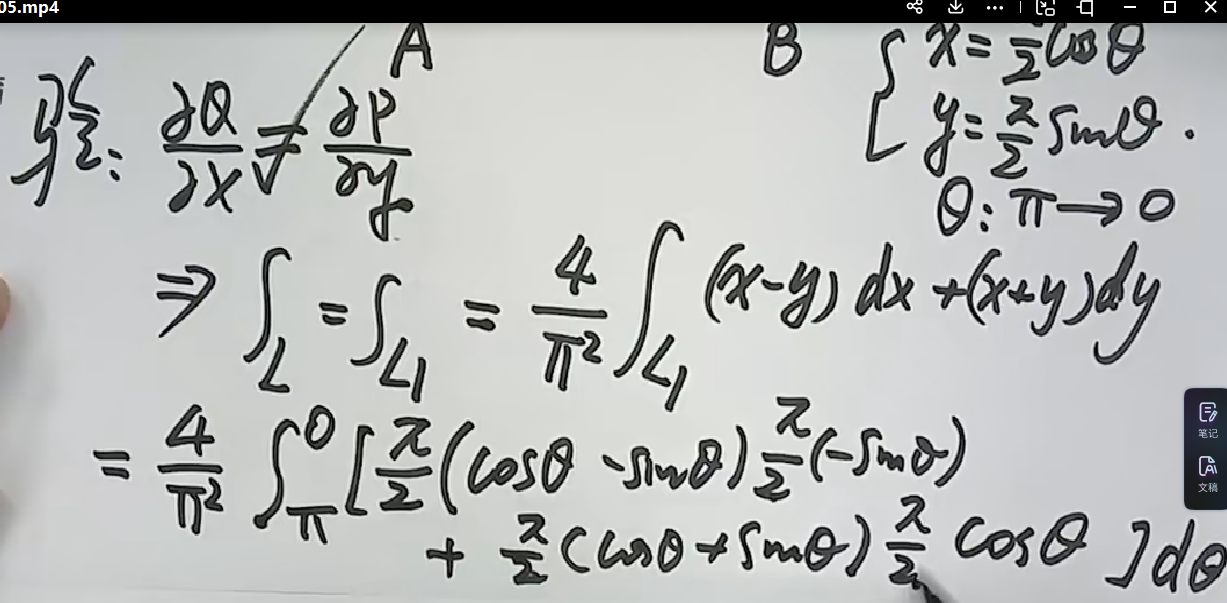 05.mp4
A B { x = π/2 cosθ
y = π/2 sinθ.
θ: π → 0
验: ∂Q/∂x = ∂P/∂y ✓
⇒ ∫_L = ∫_L₁ = 4/π² ∫_L₁ (x-y) dx + (x+y) dy
= 4/π² ∫_π^0 [ π/2 (cosθ - sinθ) π/2 (-sinθ)
+ π/2 (cosθ + sinθ) π/2 cosθ ] dθ
笔记
文稿